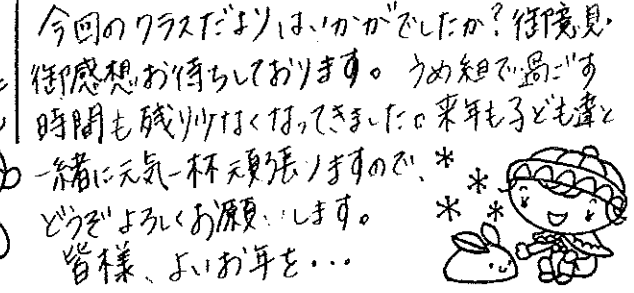 今回のクラスだよりはいかがでしたか？御意見・
御感想お待ちしております。うめ組で過ごす
時間も残り少なくなってきました。来年も子ども達と
一緒に元気一杯頑張りますので、
どうぞよろしくお願いします。
皆様、よいお年を・・・